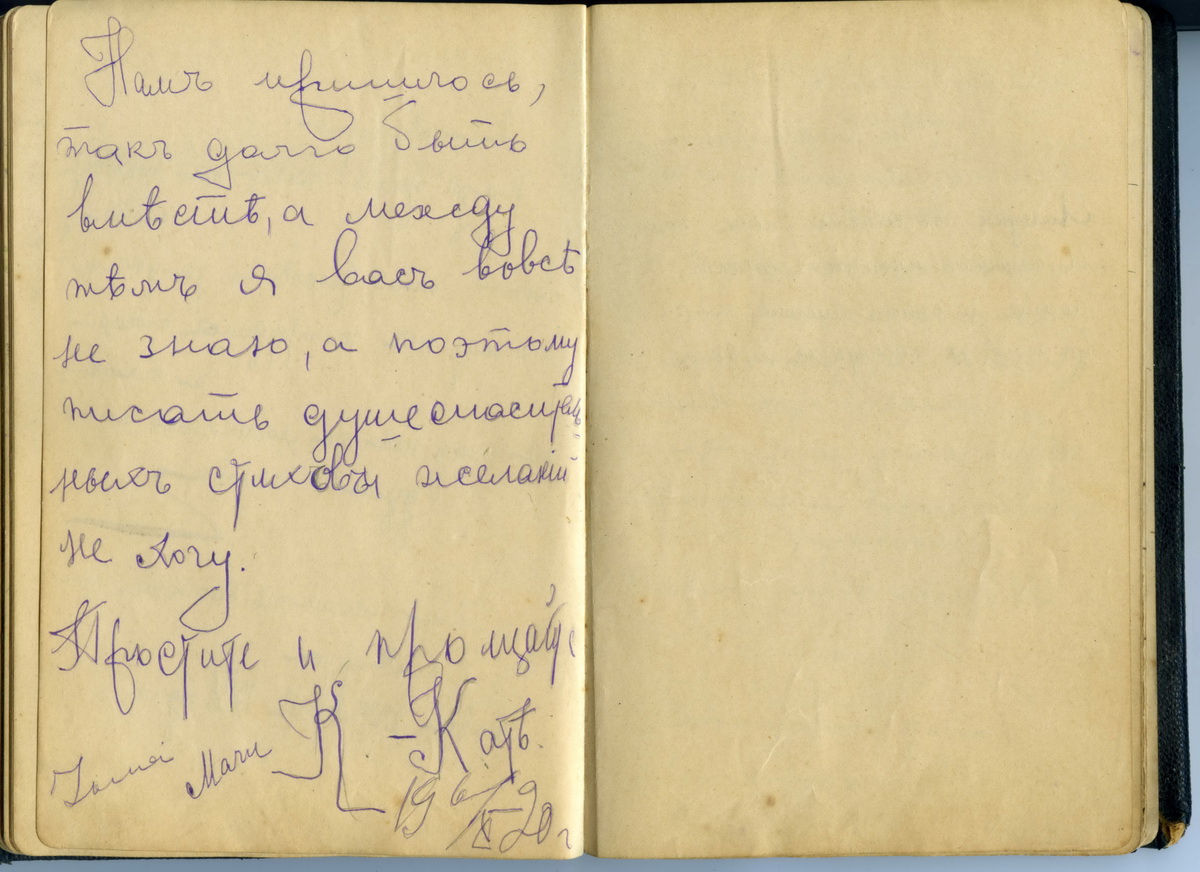 Намъ пришлось,
такъ долго быть
вмѣстѣ, а между
тѣмъ я васъ вовсѣ
не знаю, а поэтому
писать душеспаситель
ныхъ стиховъ и желаній
не хочу.
Простите и прощайте
К. - Катѣ.
19 6/X 20 г